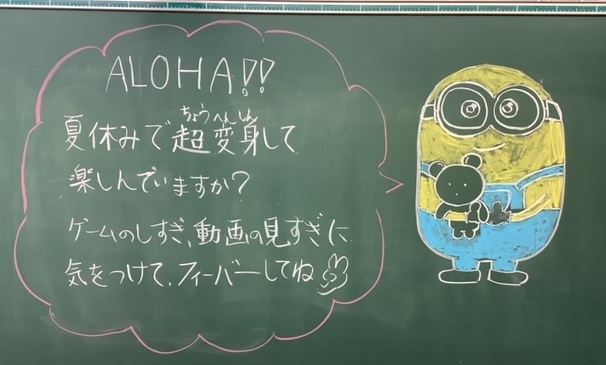 ALOHA!!
ちょうへんしん
夏休みで超変身して
楽しんでいますか?
ゲームのしすぎ、動画の見すぎに
気をつけて、フィーバーしてね